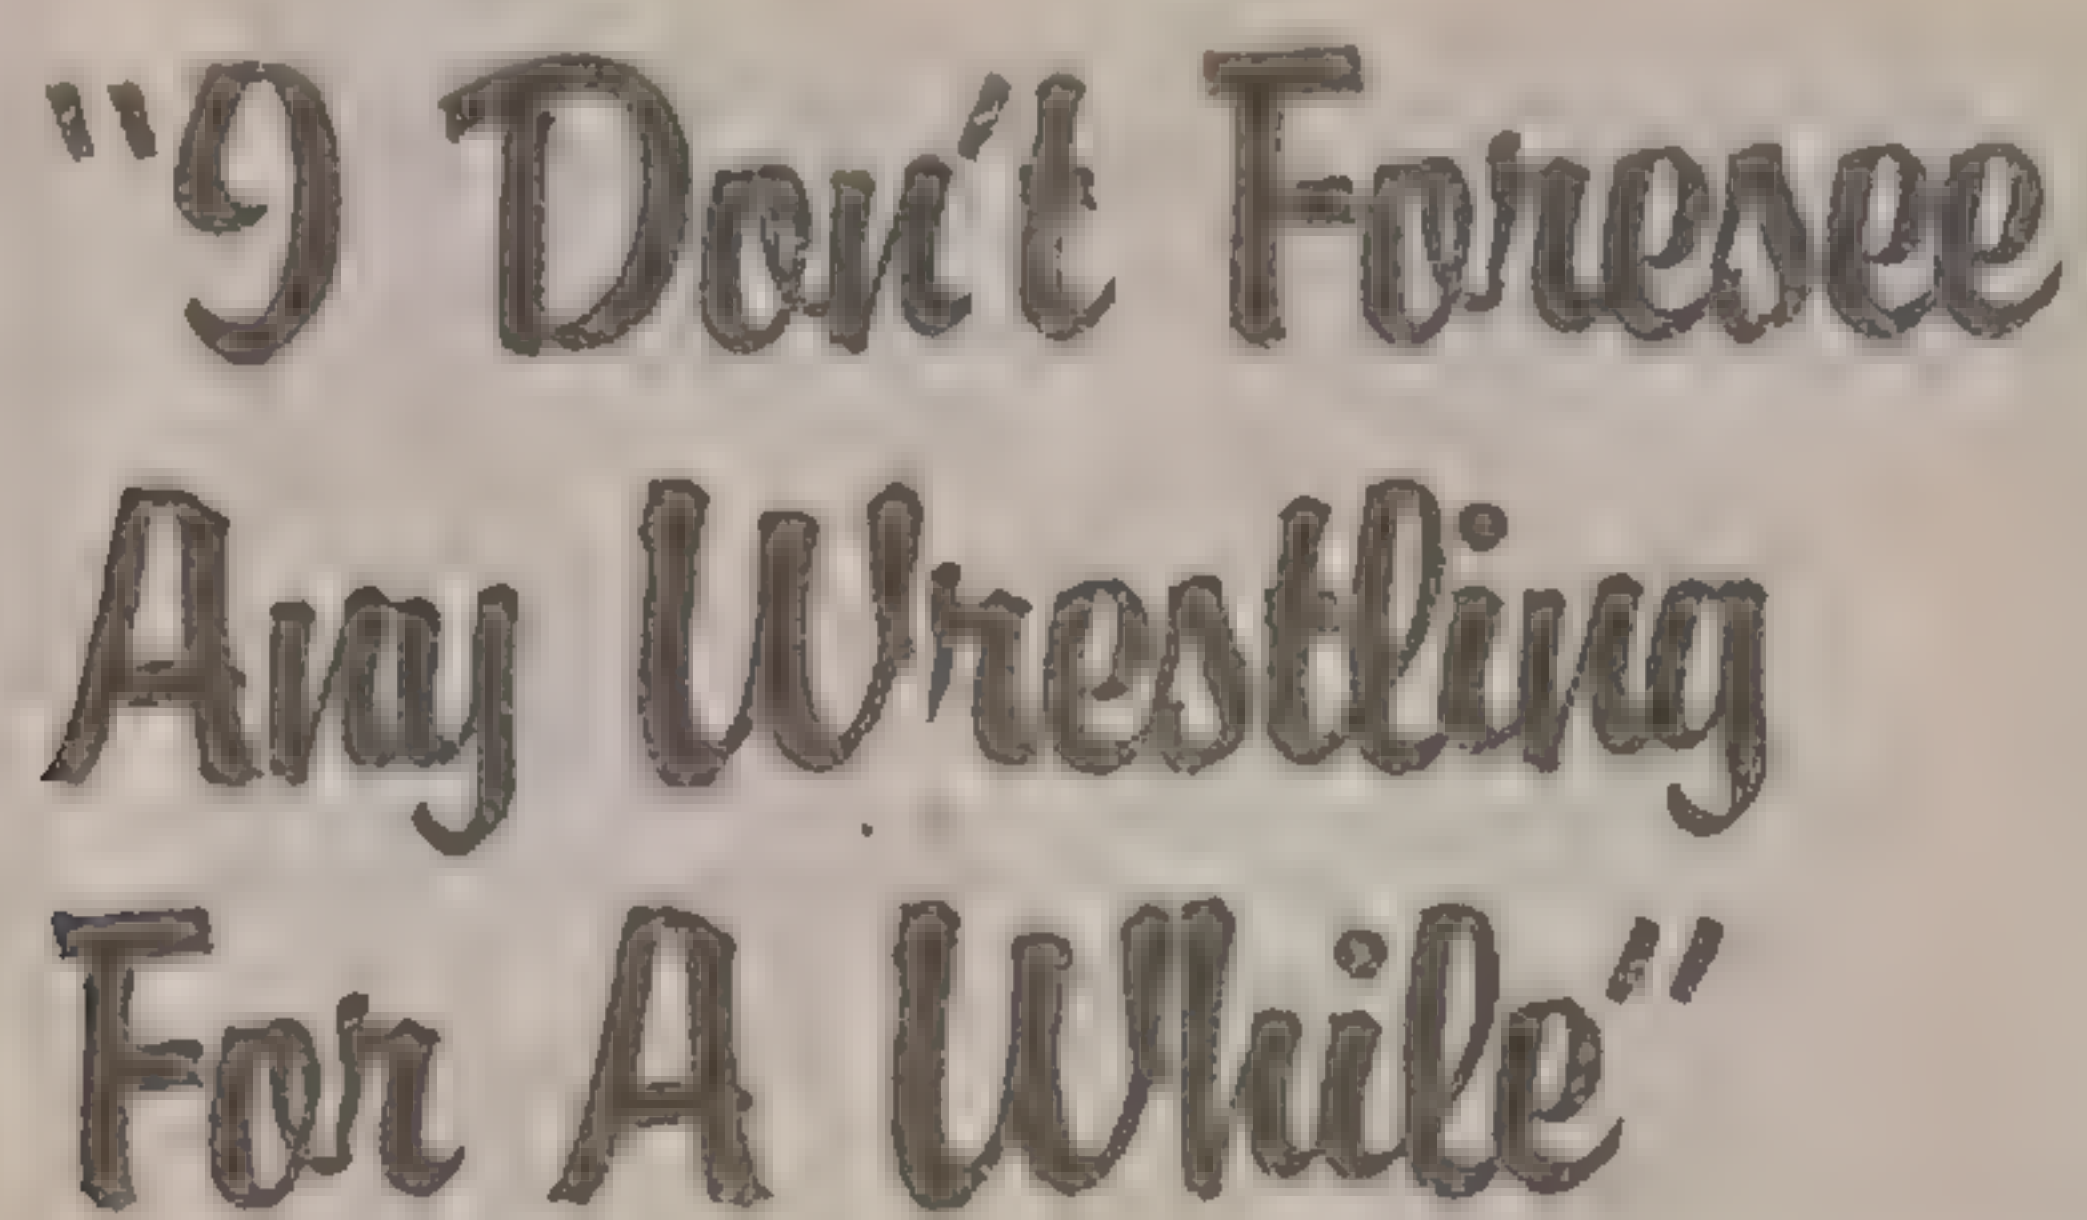 "I Don't Foresee
Any Wrestling
For A While"